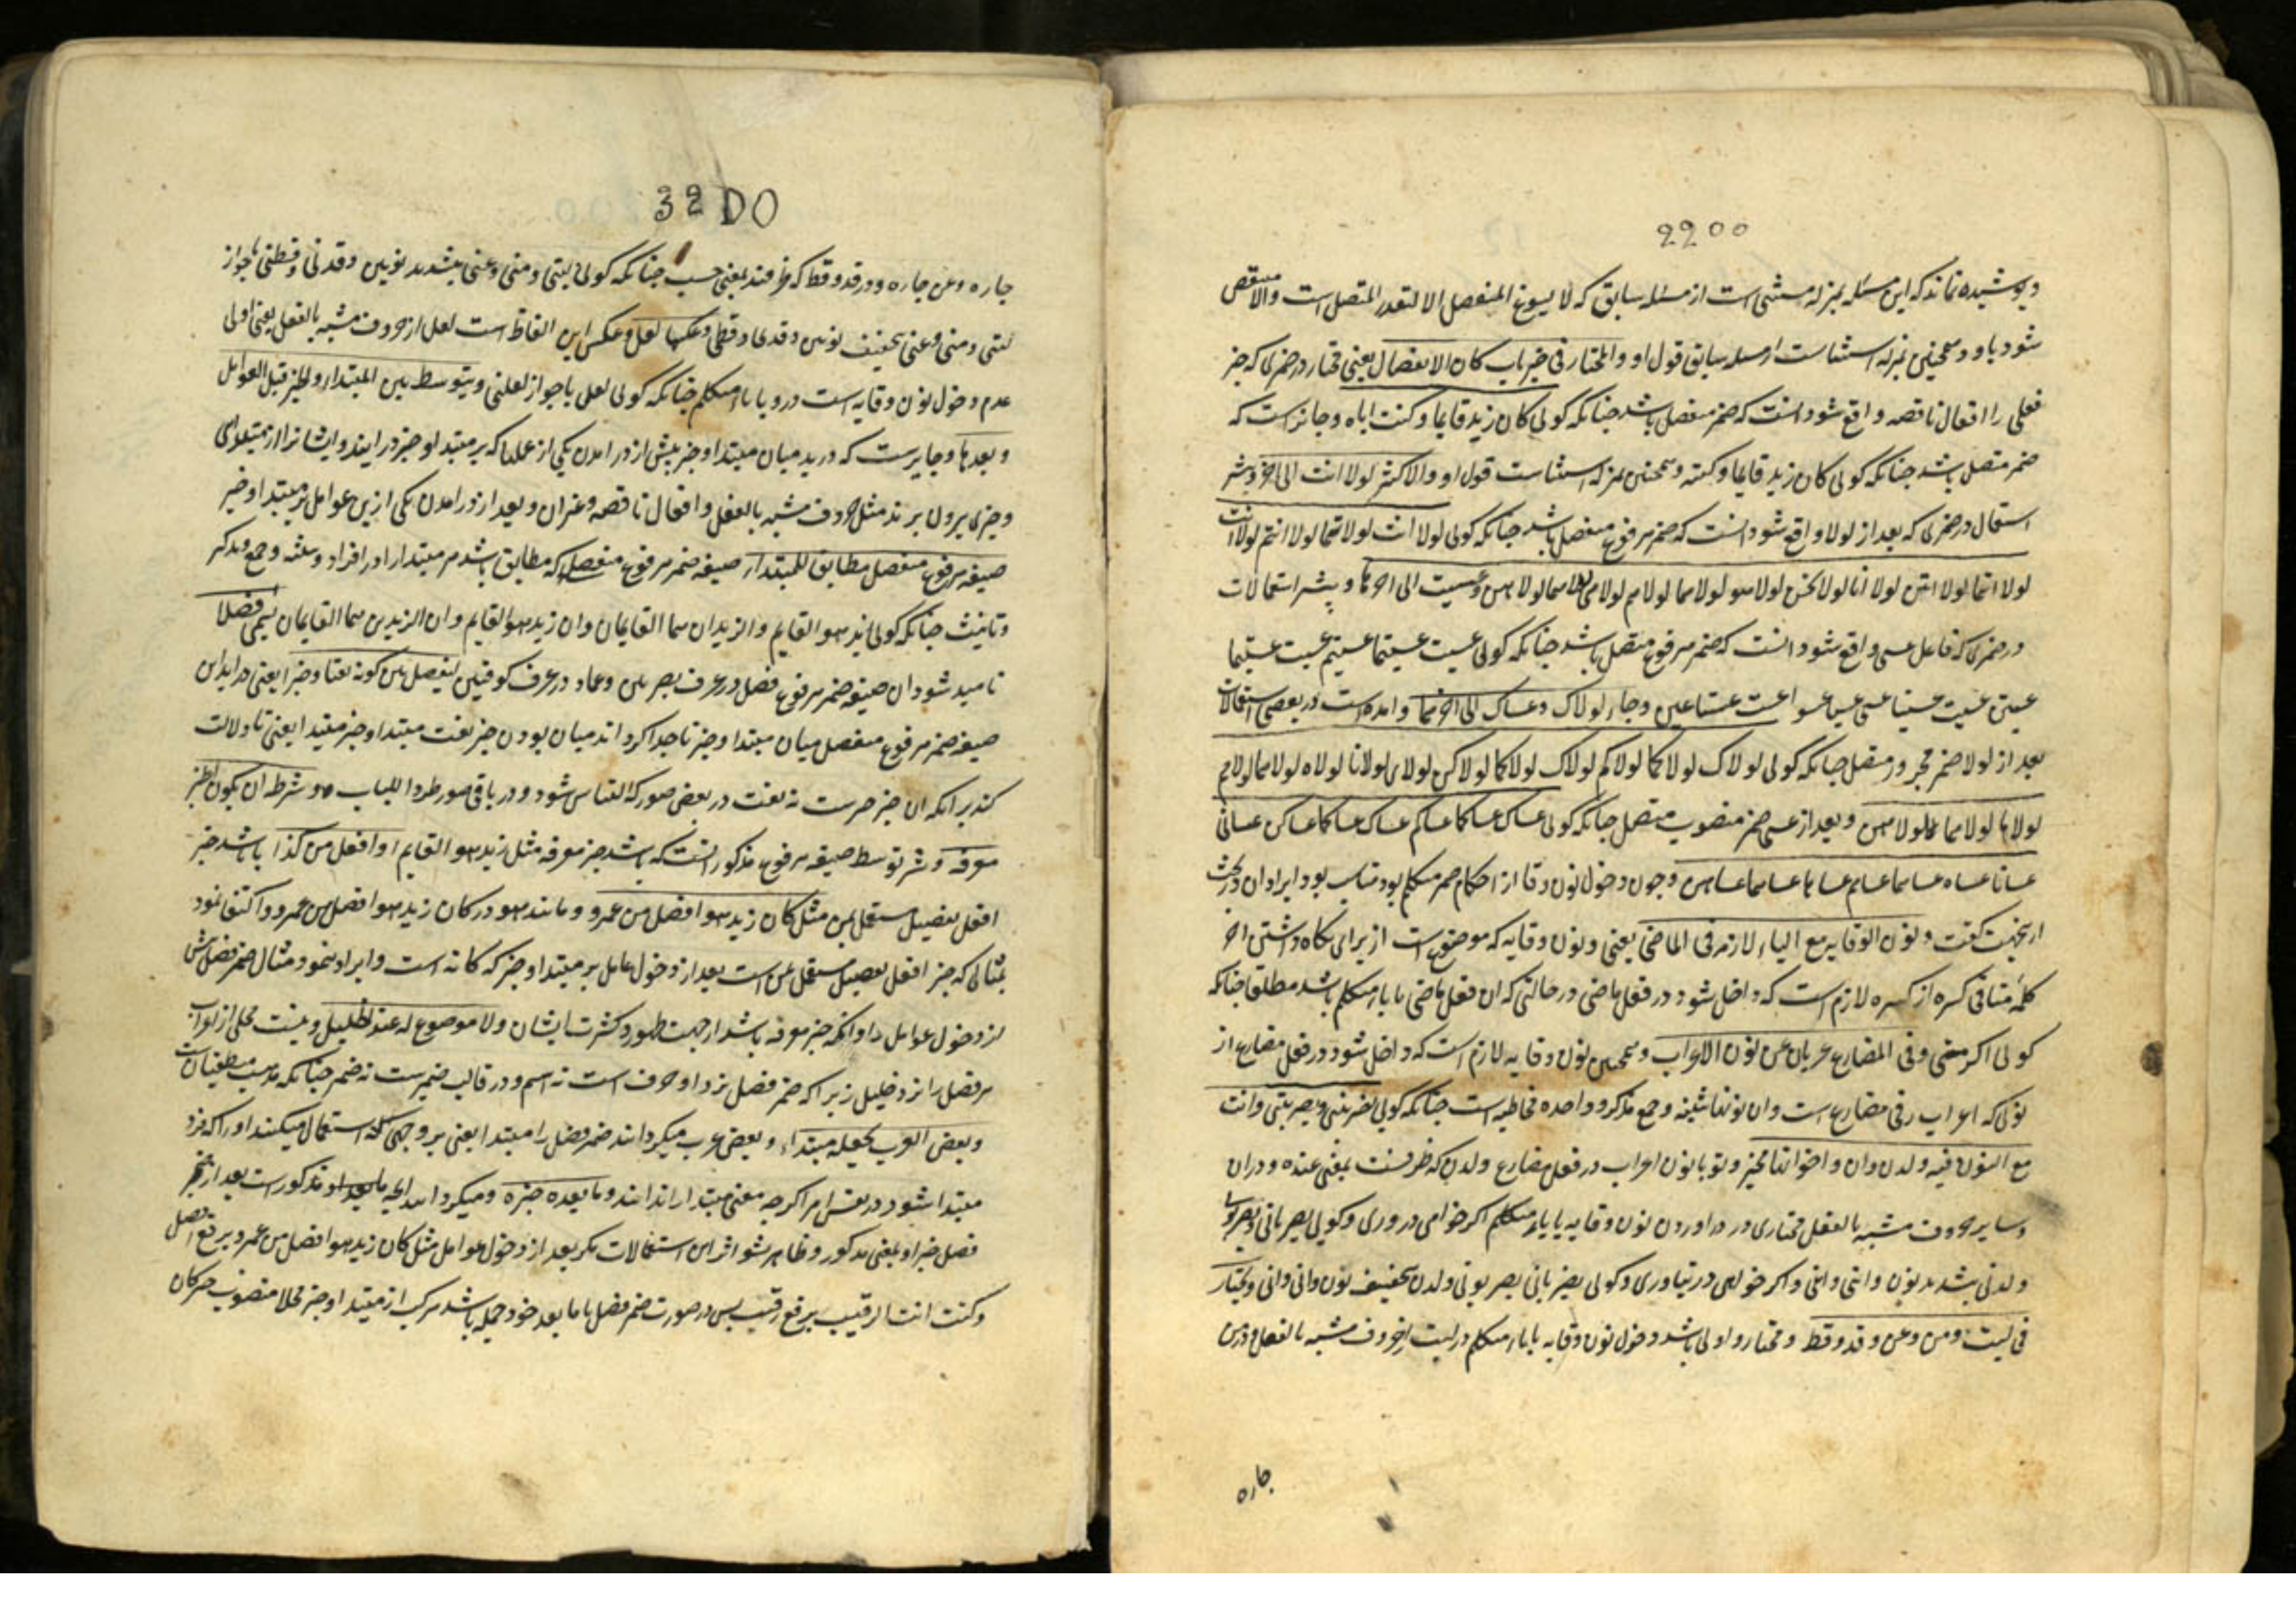 2200
و پوشیده نماند که این مسئله بمنزله مستثنی است از مسئله سابق که لا یسوغ المنفصل الا لتعذر المتصل است والا منتقض
شود باو و همچنین بمنزله استثناست از مسله سابق قول او والمختار فی خبر باب کان الانفصال یعنی مختار در ضمیری که خبر
فعلی را افعال ناقصه واقع شود انست که ضمیر منفصل باشد چنانکه کولی کان زید قایما و کنت ایاه و جایز است که
ضمیر متصل باشد چنانکه کولی کان زید قایما و کنته و همچنین بمنزله استثناست قول او والاکثر لولا انت الی اخره و بیشتر
استعمال در ضمیری که بعد از لولا واقع شود انست که ضمیر مرفوع منفصل باشد چنانکه کولی لولا انت لولا انتما لولا انتم لولا انت
لولا انتما لولا انتن لولا انا لولا نحن لولا هو لولا هما لولا هم لولا هی لولا هما لولا هن و عسیت الی اخرها و بیشتر استعمالات
در ضمیری که فاعل عسی واقع شود انست که ضمیر مرفوع متصل باشد چنانکه کولی عسیت عسیتما عسیتم عسیت عسیتما
عسیتن عسیت عسینا عسی عسیا عسوا عست عستا عسین و جاء لولاک و عساک الی اخرهما و امده است در بعضی استعمالات
بعد از لولا ضمیر مجرور متصل چنانکه کولی لولاک لولاکما لولاکم لولاک لولاکما لولاکن لولای لولانا لولاه لولاهما لولاهم
لولاها لولاهما لولاهن و بعد از عسی ضمیر منصوب متصل چنانکه کولی عساک عساکما عساکم عساک عساکما عساکن عسانی
عسانا عساه عساهما عساهم عساها عساهما عساهن و چون دخول نون وقایه از احکام ضمیر متکلم بود مناسب بود ایراد ان در بحث
ازینجهت کفت و نون الوقایه مع الیاء لازمة فی الماضی یعنی و نون وقایه که موضوع است از برای نکاه داشتن اخر
کلمه متنافی کسره از کسره لازم است که داخل شود در فعل ماضی در حالتی که ان فعل ماضی با یاء متکلم باشد مطلقا چنانکه
کولی اکرمنی و فی المضارع عریا عن نون الاعراب و همچنین نون وقایه لازم است که داخل شود در فعل مضارع از
نونی که اعراب رفی مضارع است و ان نونها تثنیه و جمع مذکر و واحده مخاطبه است چنانکه کولی یضربنی و یضربننی و انت
مع النون فیه و لدن و ان و اخواتها مخیر و تو با نون اعراب در فعل مضارع و لدن که ظرفست بمعنی عنده و در ان
و سایر حروف مشبه بالفعل مختاری در در اوردن نون وقایه با یاء متکلم اکر خواهی در اوری و کویی یضربانی و یضربونی
و لدنی بتشدید نون و اننی و اکر خواهی در نیاوری و کولی یضربانی یضربونی و لدن بتخفیف نون و انی و انی و یختار
فی لیت و من و عن و قد و قط و مختار و اولی باشد دخول نون وقایه با یاء متکلم در لیت از حروف مشبه بالفعل و در من
جاره
32 DO
جاره و عن جاره و در قد و قط که ظرفند بمعنی حسب چنانکه کولی لیتنی و منی و عنی بتشدید نونین و قدنی و قطنی با جواز
لیتی و منی و عنی بتخفیف نونین و قدی و قطی و عکسها لعل و عکس این الفاظ است لعل از حروف مشبه بالفعل یعنی اولی
عدم دخول نون وقایه است درو با یاء متکلم چنانکه کولی لعلی با جواز لعلنی و یتوسط بین المبتداء والخبر قبل العوامل
و بعدها و جایزست که در یه میان مبتدا و خبر پیش از در امدن یکی از عملها که بر مبتدا و خبر در ایند و ایشانرا از مبتدایی
و خبری بیرون برند مثل حروف مشبه بالفعل و افعال ناقصه و غیر ان و بعد از در امدن یکی ازین عوامل بر مبتدا و خبر
صیغه مرفوع منفصل مطابق للمبتداء صیغه ضمیر مرفوع منفصل که مطابق باشد مر مبتدا را در افراد و تثنیه و جمع و تذکیر
و تانیث چنانکه کولی زید هو القایم و الزیدان هما القایمان و ان زید هو القایم و ان الزیدین هما القایمان یسمی فصلا
نامیده شود ان صیغه ضمیر مرفوع فصل در عرف بصریین و عماد در عرف کوفیین لیفصل بین کونه نعتا و خبرا یعنی در اید این
صیغه ضمیر مرفوع منفصل میان مبتدا و خبر تا جدا کرداند میان بودن خبر نعت مبتدا و خبر مبتدا یعنی تا دلالت
کند بر انکه ان خبر خبرست نه نعت در بعضی صور که التباس شود و در باقی صور طردا للباب و شرطه ان یکون الخبر
معرفه و شرط توسط صیغه مرفوع مذکور انست که باشد خبر معرفه مثل زید هو القایم او افعل من کذا یا باشد خبر
افعل تفضیل مستعمل بمن مثل کان زید هو افضل من عمرو و مانند هو در کان زید هو افضل من عمرو و اکتفا نمود
بمثالی که خبر افعل تفضیل مستعمل بمن است بعد از دخول عامل بر مبتدا و خبر که کانه است و ایراد ننمود مثال ضمیر فصل پیش
از دخول عوامل را و انکه خبر معرفه باشد از جهت ظهور و کثرت ایشان و لا موضع له عند الخلیل و نیست محلی از اعراب
مر فصل را نزد خلیل زیرا که ضمیر فصل نزد او حرف است نه اسم و در قالب ضمیرست نه ضمیر چنانکه مذهب منطقیانست
و بعض العرب یجعله مبتداء و بعضی عرب میکردانند ضمیر فصل را مبتدا یعنی بر وجهی استعمال میکنند او را که فرد
مبتدا شود در نفس امر اکرچه معنی مبتدا را ندانند و ما بعده خبره و میکردانند انچه ما بعد او مذکور است بعد از ضمیر
فصل خبر او بمعنی مذکور و ظاهر نشود اثر این استعمالات مکر بعد از دخول عوامل مثل کان زید هو افضل من عمرو برفع افضل
و کنت انت الرقیب برفع رقیب پس در صورت ضمیر فصل با ما بعد خود جمله باشد مرکب از مبتدا و خبر محلا منصوب خبر کان